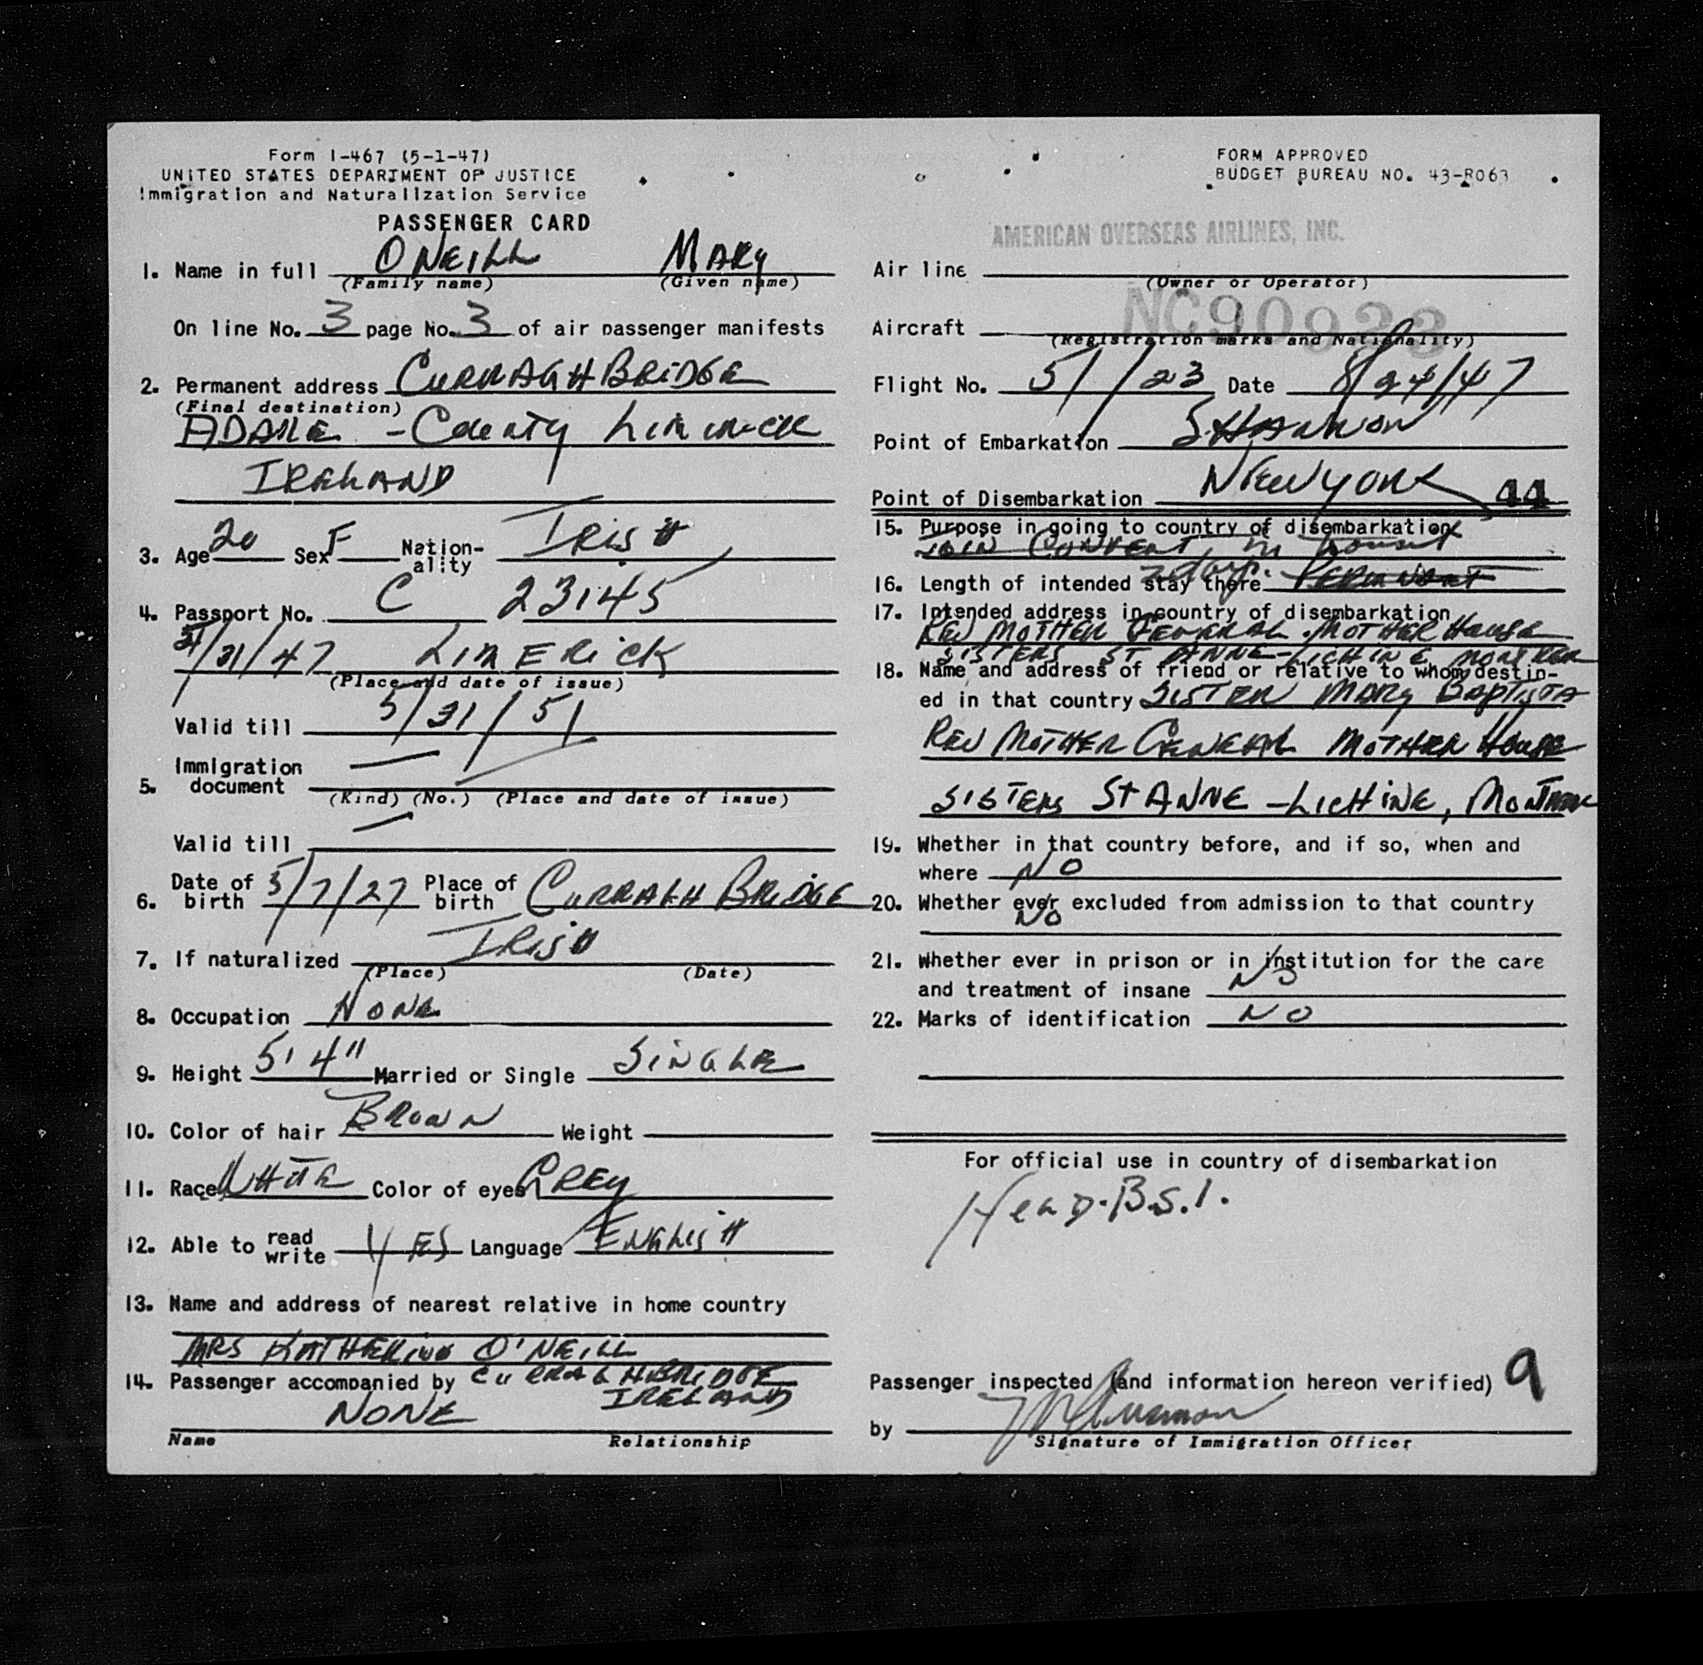 Form I-467 (5-1-47)
UNITED STATES DEPARTMENT OF JUSTICE
Immigration and Naturalization Service
PASSENGER CARD
1. Name in full O NEILL MARY
(Family name) (Given name)
On line No. 3 page No. 3 of air passenger manifests
2. Permanent address CURRAGHBRIDGE
(Final destination)
ADARE - COUNTY LIMERICK
IRELAND
3. Age 20 Sex F Nation-ality IRISH
4. Passport No. C 23145
5/31/47 LIMERICK
(Place and date of issue)
Valid till 5/31/51
5. Immigration document —
(Kind) (No.) (Place and date of issue)
Valid till —
6. Date of birth 5/7/27 Place of birth CURRAGH BRIDGE
7. If naturalized IRISH
(Place) (Date)
8. Occupation NONE
9. Height 5' 4" Married or Single SINGLE
10. Color of hair BROWN Weight
11. Race WHITE Color of eyes GREY
12. Able to read write YES Language ENGLISH
13. Name and address of nearest relative in home country
MRS KATHERINE O'NEILL
14. Passenger accompanied by CURRAGHBRIDGE
IRELAND
NONE
Name Relationship
FORM APPROVED
BUDGET BUREAU NO. 43-R063
AMERICAN OVERSEAS AIRLINES, INC.
Air line
(Owner or Operator)
Aircraft NC90923
(Registration marks and Nationality)
Flight No. 5/ /23 Date 8/24/47
Point of Embarkation SHANNON
Point of Disembarkation NEW YORK 44
15. Purpose in going to country of disembarkation
JOIN CONVENT, in transit
16. Length of intended stay there 2 days. PERMANENT
17. Intended address in country of disembarkation
REV MOTHER GENERAL. MOTHER HOUSE
SISTERS ST ANNE-LICHINE
18. Name and address of friend or relative to whom destin-
ed in that country SISTER MARY BAPTISTA
REV MOTHER GENERAL MOTHER HOUSE
SISTERS ST ANNE - LICHINE,
19. Whether in that country before, and if so, when and
where NO
20. Whether ever excluded from admission to that country
NO
21. Whether ever in prison or in institution for the care
and treatment of insane NO
22. Marks of identification NO
For official use in country of disembarkation
B.S.I.
Passenger inspected (and information hereon verified) 9
by
Signature of Immigration Officer